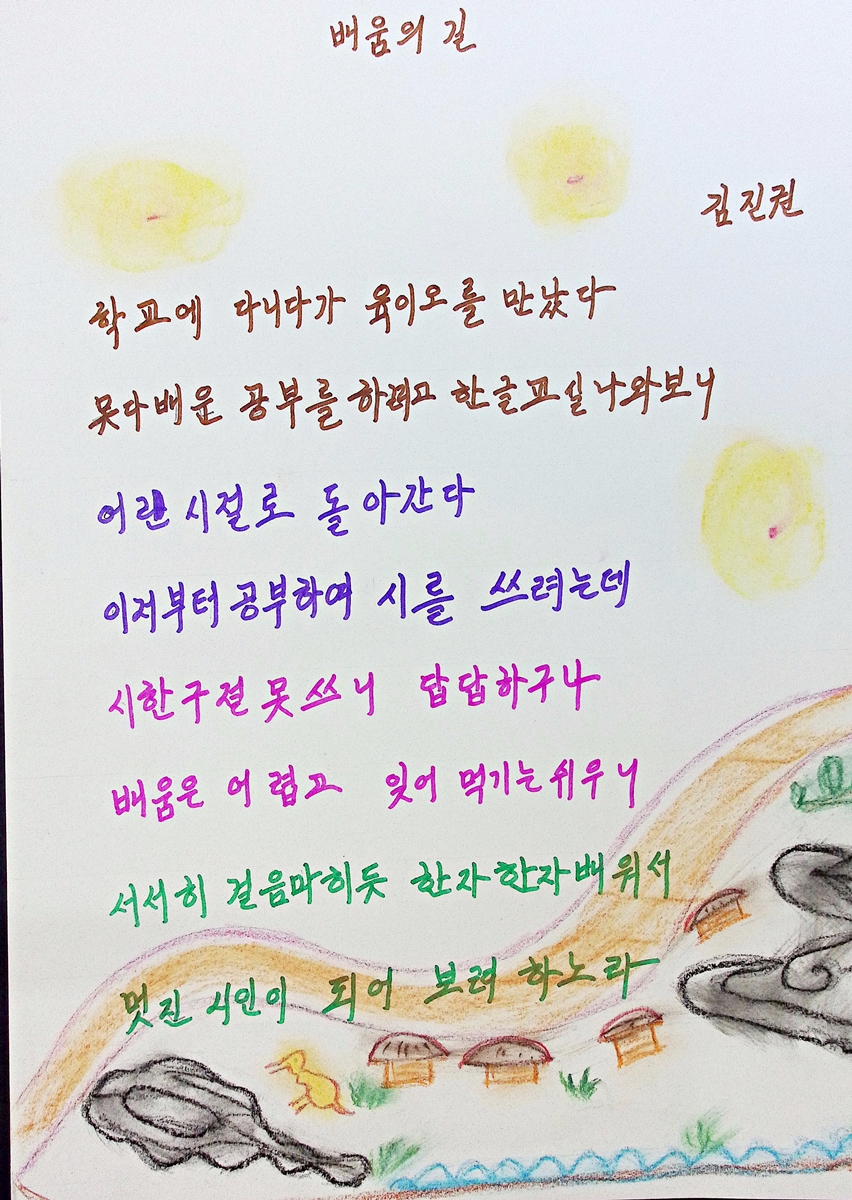 배움의 길
김진권
학교에 다니다가 육이오를 만났다
못다배운 공부를 하려고 한글교실 나와보니
어린시절로 돌아간다
이저부터 공부하여 시를 쓰려는데
시한구절 못쓰니 답답하구나
배움은 어렵고 잊어 먹기는쉬우니
서서히 걸음마히듯 한자한자배워서
멋진 시인이 되어 보려 하노라